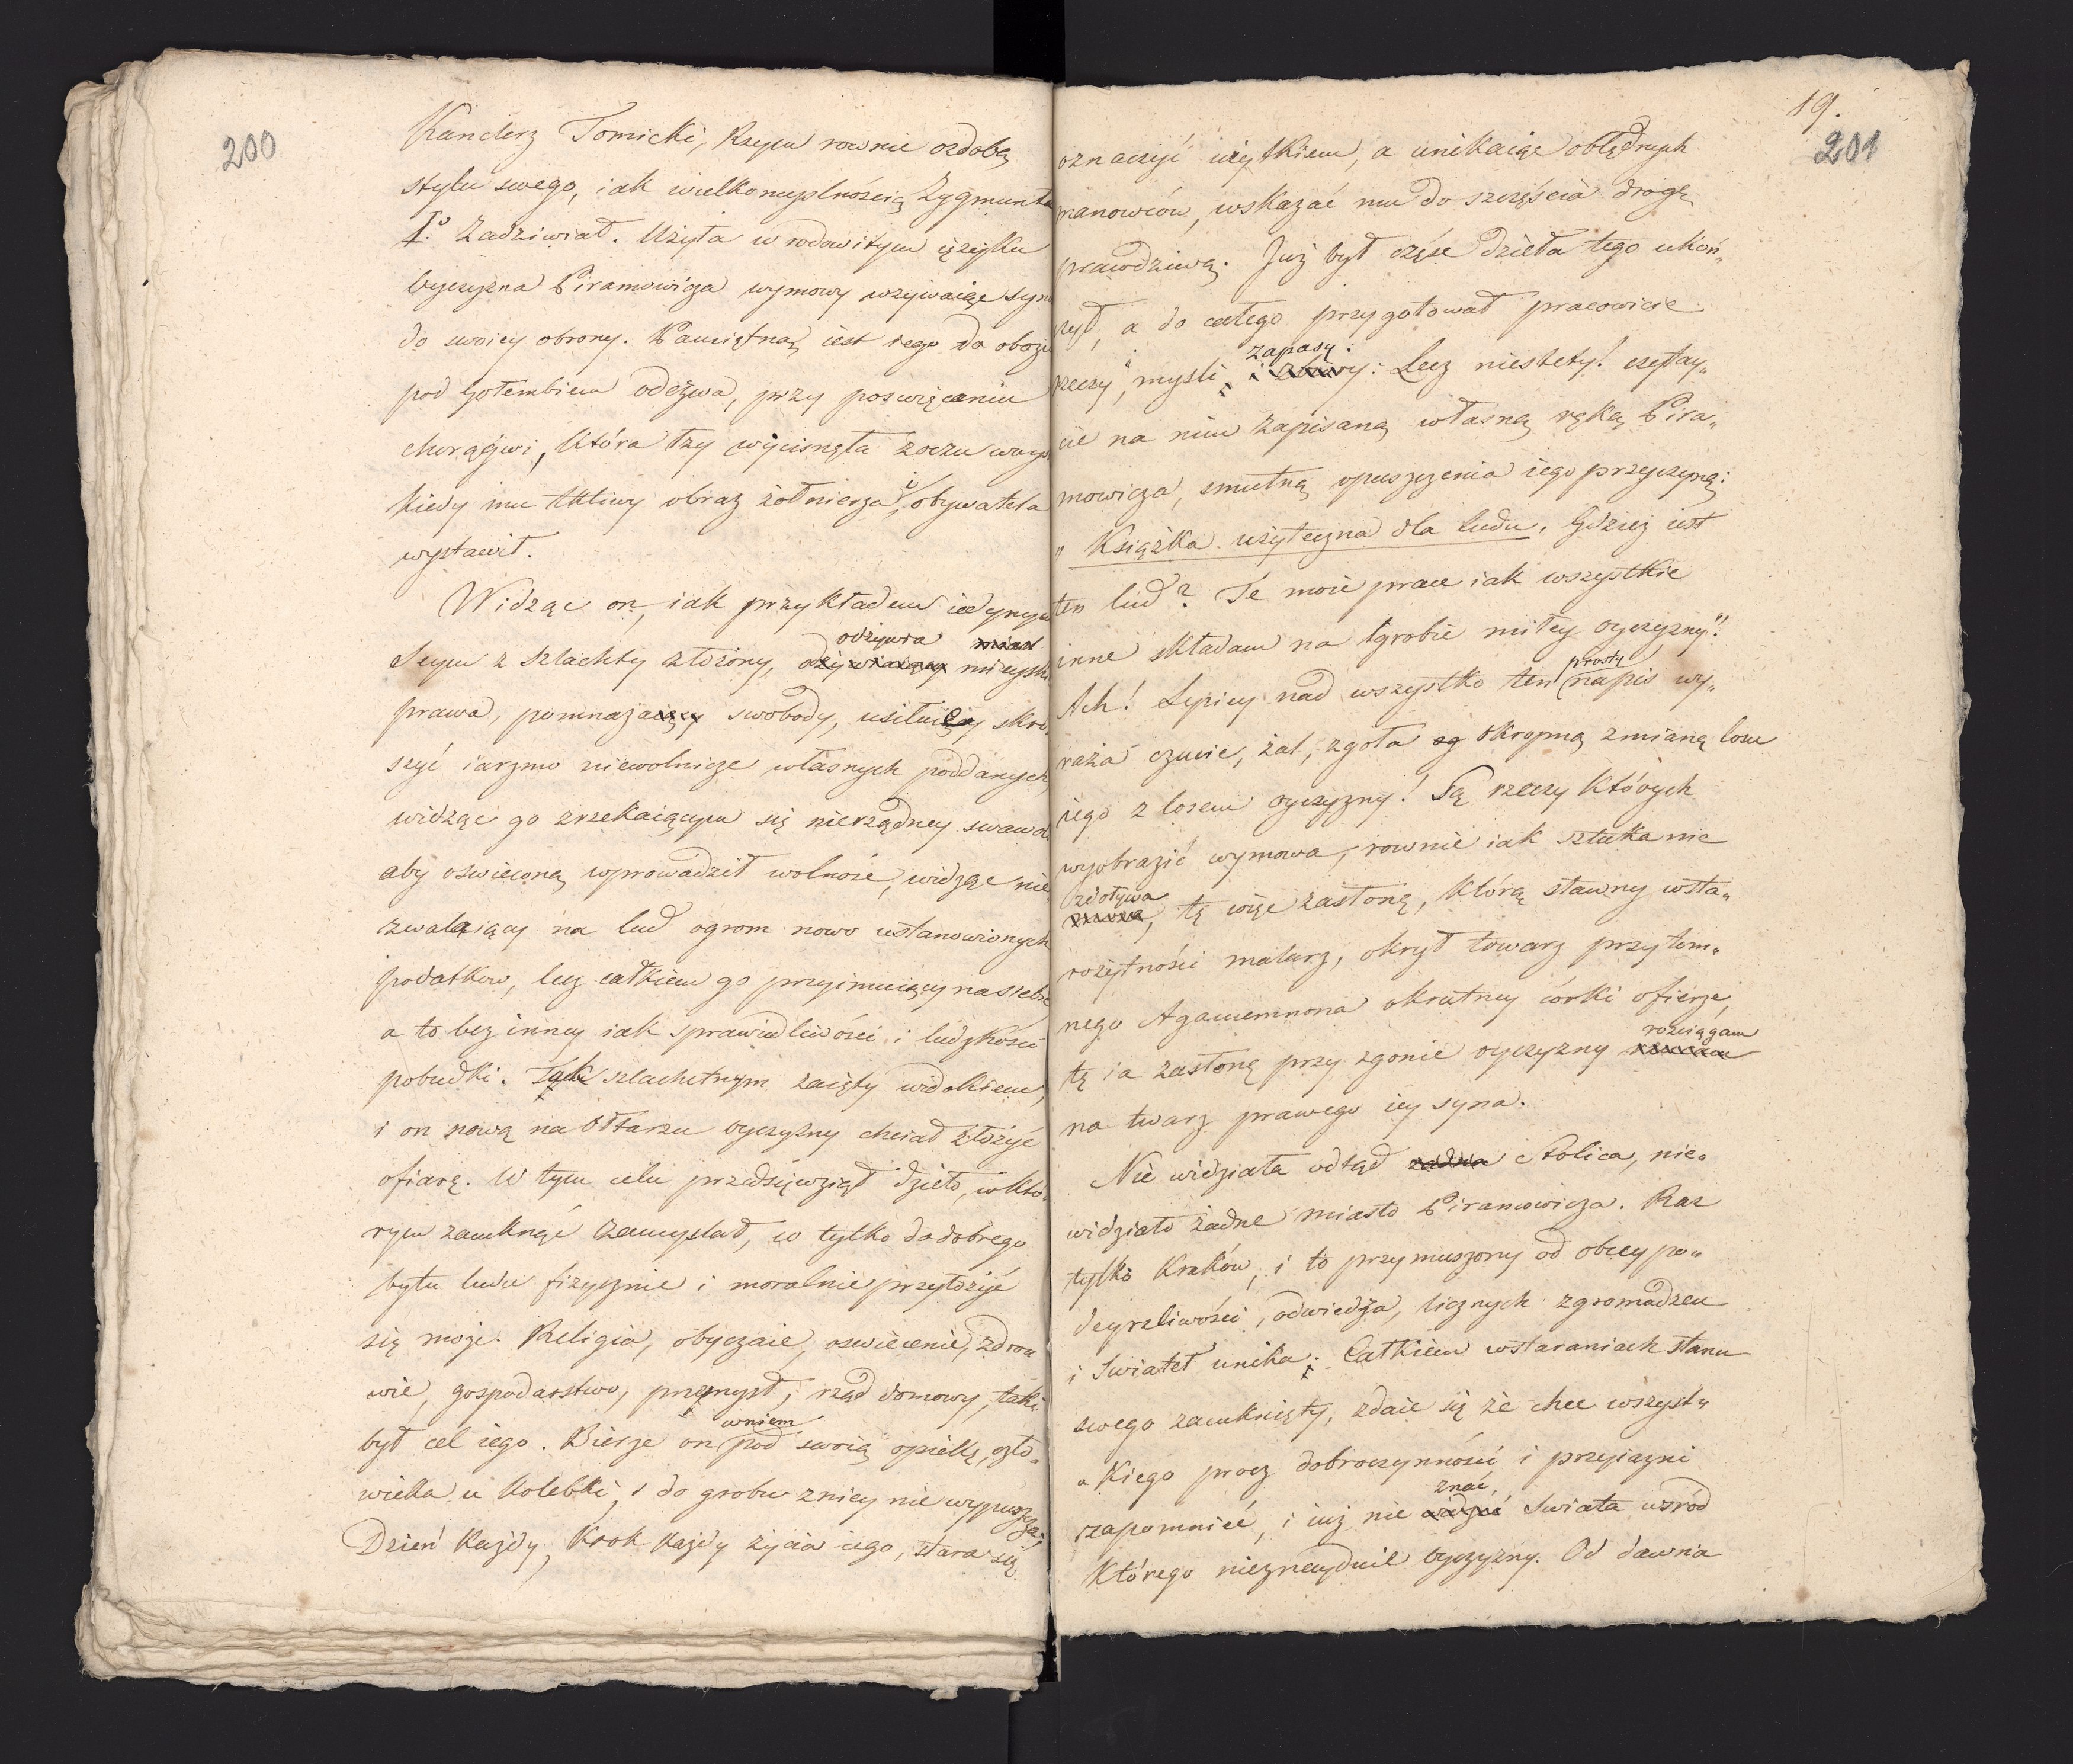 200
Kanclerz Tomicki, Rzym rownie ozdobą
stylu swego, iak wielkomyślnością Zygmunta
I.º Zadziwiał. Użyła w rodowitym ięzyku
Oyczyzna Piramowicza wymowy wzywaiąc syna
do swoiey obrony. Pamiętną iest iego do obozu
pod Gołembiem odezwa, przy poswięceniu
chorągwi, która łzy wycisnęła z oczu woysk
kiedy mu tkliwy obraz żołnierza i obywatela
wystawił.
Widząc on, iak przykładem iedynym
odżywia
Seym z szlachty złożony, odżywiaiący mieysk.
prawa, pomnaża swobody, usiłuie skru
szyć iarzmo niewolnicze własnych poddanych,
widząc go zrzekaiącym się nierządney swawol
aby oswieconą wprowadził wolność, widząc nie
zwalaiący na lud ogrom nowo ustanowionych
podatkow, lecz całkiem go przyimuiący na siebie
a to bez inney iak sprawiedliwości i ludzkości
pobudki. Tak szlachetnym zaięty widokiem,
i on nową na Ołtarzu oyczyzny chciał złożyć
ofiarę. W tym celu przedsięwziął dzieło, w któ„
rym zamknąć zamyslał, co tylko do dobrego
bytu ludu fizycznie i moralnie przyłożyć
się może. Religia, obyczaie, oswiecenie, zdro„
wie, gospodarstwo, przemysł, rząd domowy, taki
był cel iego. Bierze on wniem pod swoią opiekę, czło„
wieka u kolebki, i do grobu zniey nie wypuszcza.
Dzień każdy, krok każdy życia iego, stara się
19.
201
oznaczyć użytkiem, a unikaiąc obłędnych
manowców, wskazać mu do szczęścia drogę
prawdziwą. Już był część dzieła tego ukoń„
czył, a do całego przygotował pracowicie
zapasy.
rzeczy, i mysli i zbiory: Lecz niestety! czytay„
cie na nim zapisaną własną ręką Pira„
mowicza, smutną opuszczenia iego przyczynę:
„ Książka użyteczna dla ludu. Gdzież iest
ten lud? Te moie prace iak wszystkie
inne składam na grobie miłey oyczyzny"!
Ach! Lepiey nad wszystko ten prosty napis wy„
raża czucie, żal, zgoła og okropną zmianę losu
iego z losem oyczyzny! Są rzeczy których
wyobrazić wymowa, rownie iak sztuka nie
zdoływa, tę więc zasłonę, którą sławny w sta„
rożytności malarz, okrył towarz przytom„
nego Agamemnona okrutney córki ofierze,
tę ia zasłonę przy zgonie oyczyzny rozciągam
na twarz prawego iey syna.
Nie widziała odtąd żadna stolica, nie„
widziało żadne miasto Piramowicza. Raz
tylko Kraków, i to przymuszony od obcey po„
deyrzliwości, odwiedza, licznych zgromadzeń
i Swiateł unika: Całkiem w staraniach stanu
swego zamknięty, zdaie się że chce wszyst„
„kiego procz dobroczynności i przyiazni
znać,
zapomnieć, i iuż nie widzieć Swiata wsród
którego nieznaydził Oyczyzny. Od dawna